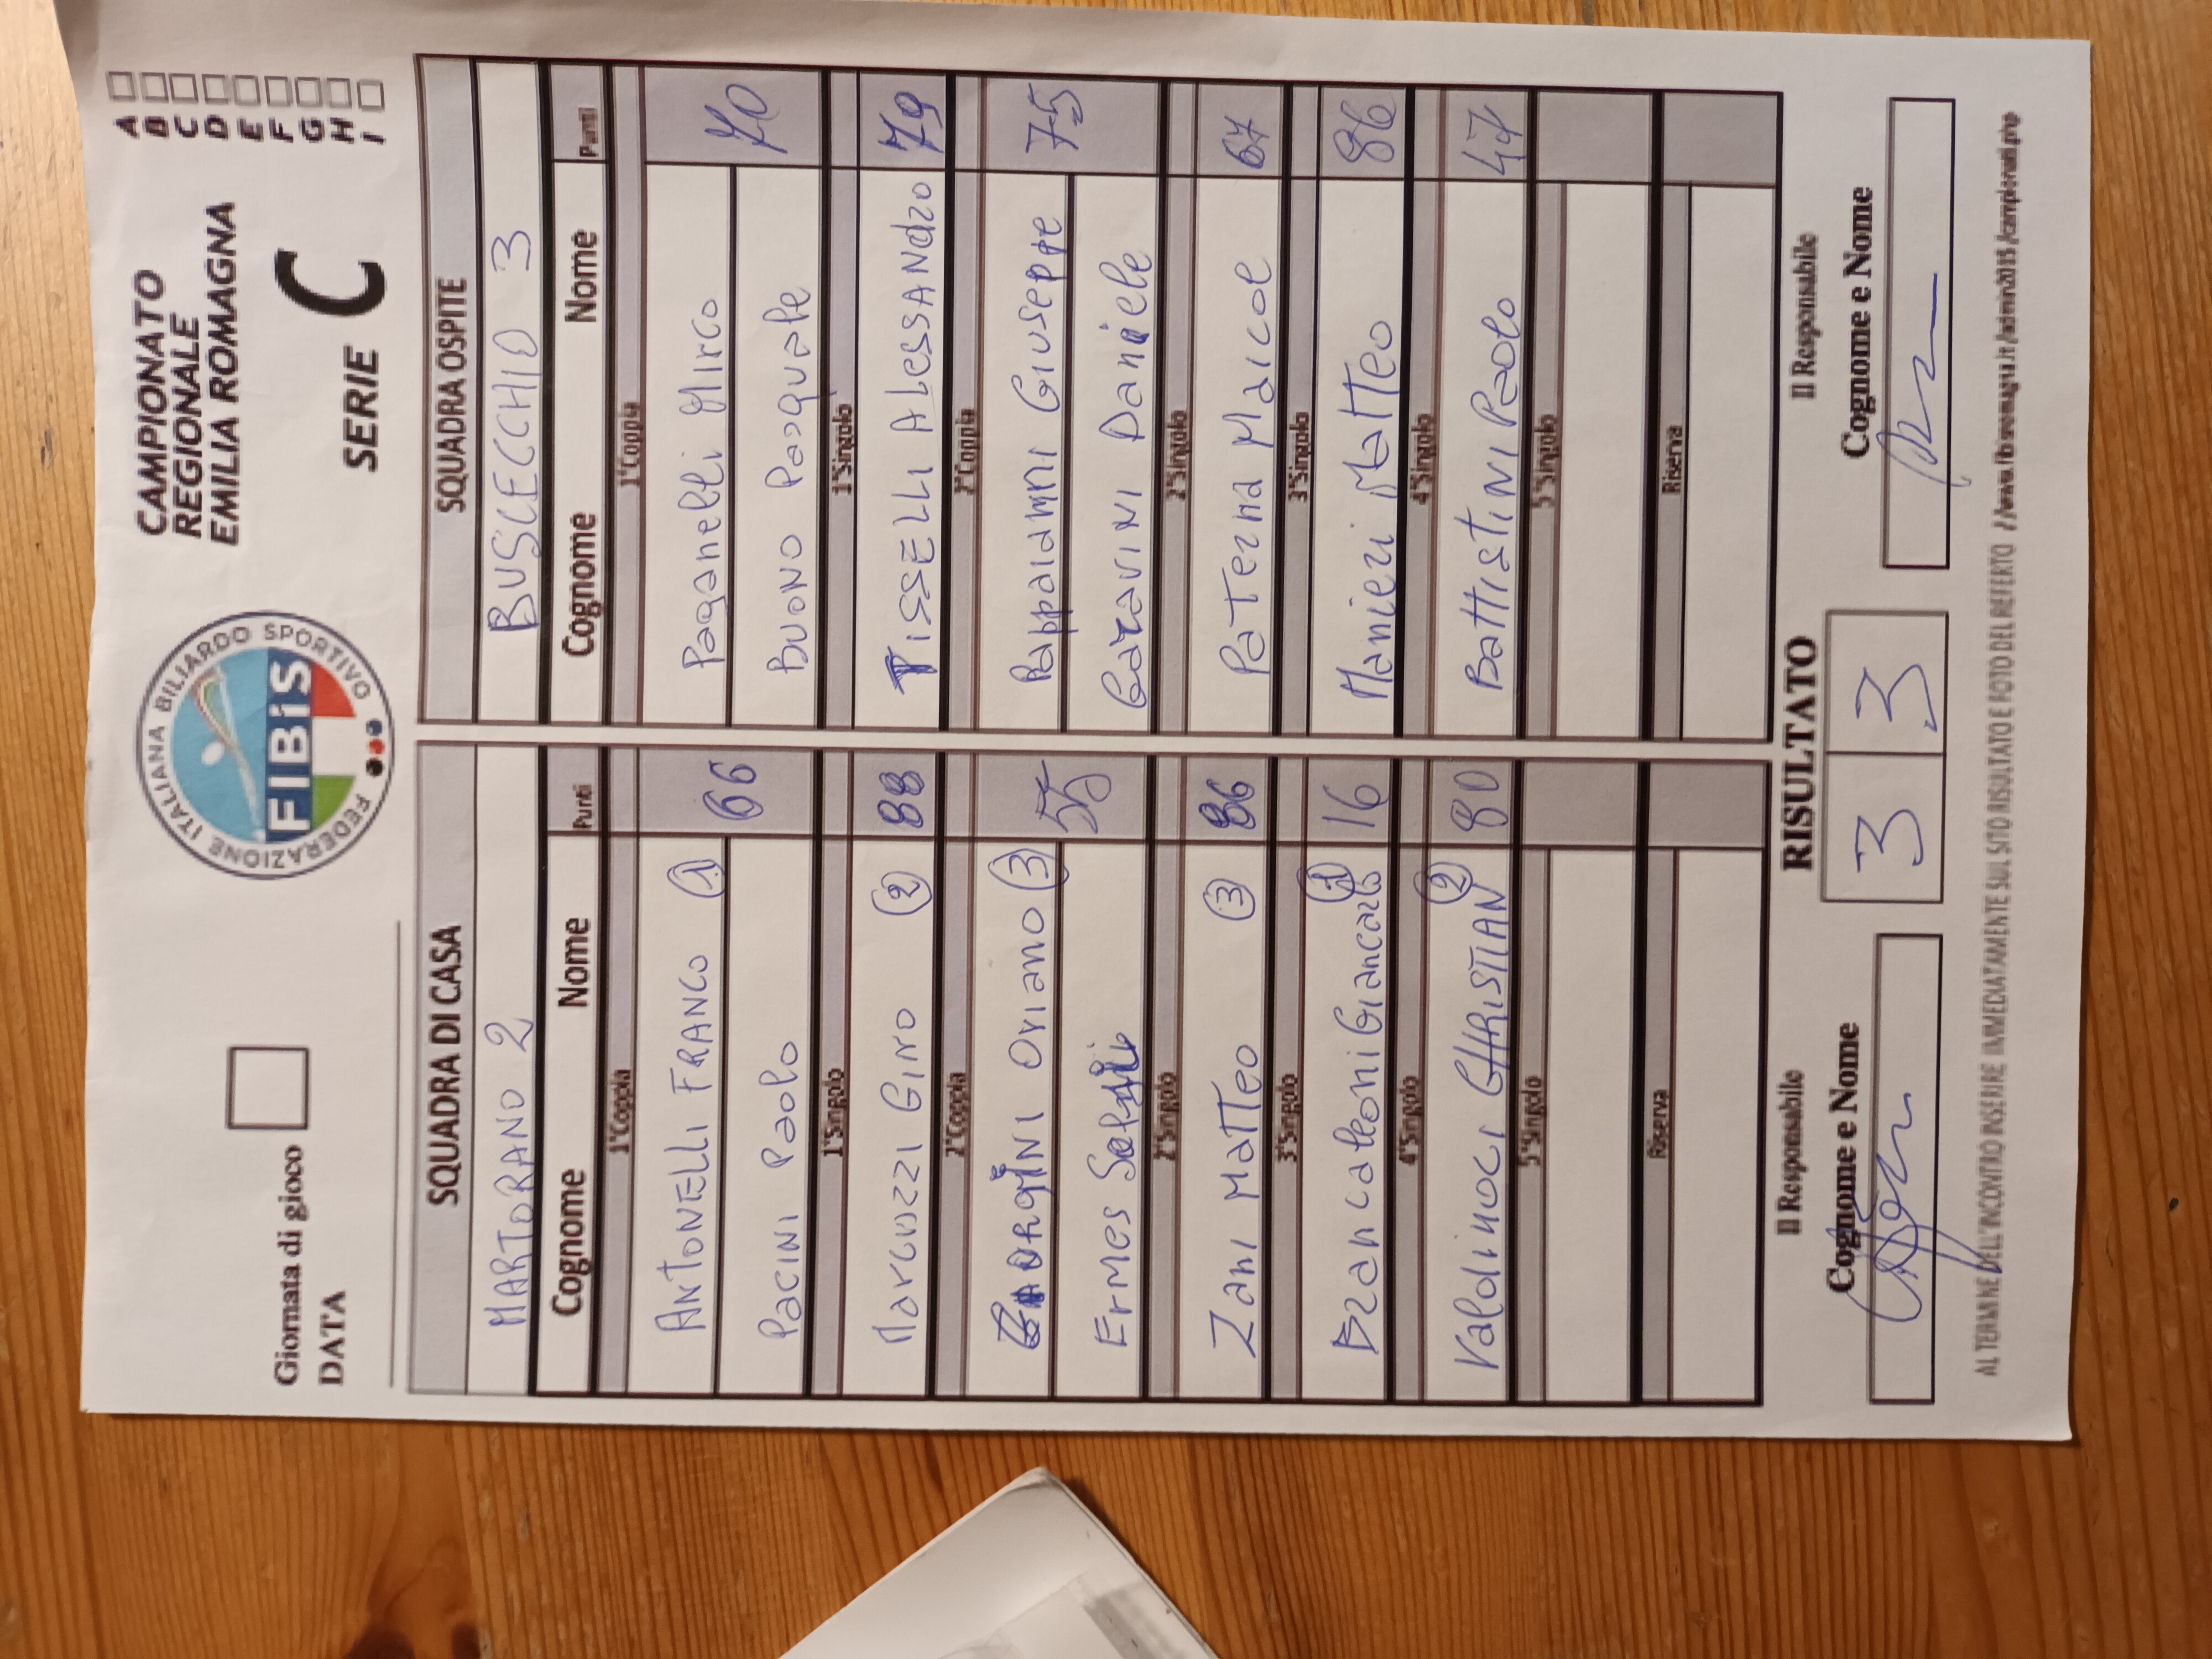 Giornata di gioco
DATA
FEDERAZIONE ITALIANA BILIARDO SPORTIVO
FIBiS
CAMPIONATO
REGIONALE
EMILIA ROMAGNA
SERIE C
A
B
C
D
E
F
G
H
I
SQUADRA DI CASA
MARTORANO 2
Cognome Nome Punti
1°Coppia
ANTONELLI FRANCO 1 66
Pacini Paolo
1°Singolo
Marcuzzi Gino 2 88
2°Coppia
Oriano 3 55
Ermes
2°Singolo
Zani Matteo 3 86
3°Singolo
Brancaleoni Giancarlo 1 16
4°Singolo
Valdinoci CHRISTIAN 2 80
5°Singolo
Riserva
SQUADRA OSPITE
BUSCECCHIO 3
Cognome Nome Punti
1°Coppia
Paganelli Mirco 70
BUONO Pasquale
1°Singolo
TISSELLI ALESSANdro 79
2°Coppia
Giuseppe 75
Garavini Daniele
2°Singolo
Paterna Maicol 67
3°Singolo
Manieri Matteo 86
4°Singolo
BattistiNi Paolo 47
5°Singolo
Riserva
Il Responsabile
Cognome e Nome
RISULTATO
3 3
Il Responsabile
Cognome e Nome
AL TERMINE DELL'INCONTRO INSERIRE IMMEDIATAMENTE SUL SITO RISULTATO E FOTO DEL REFERTO